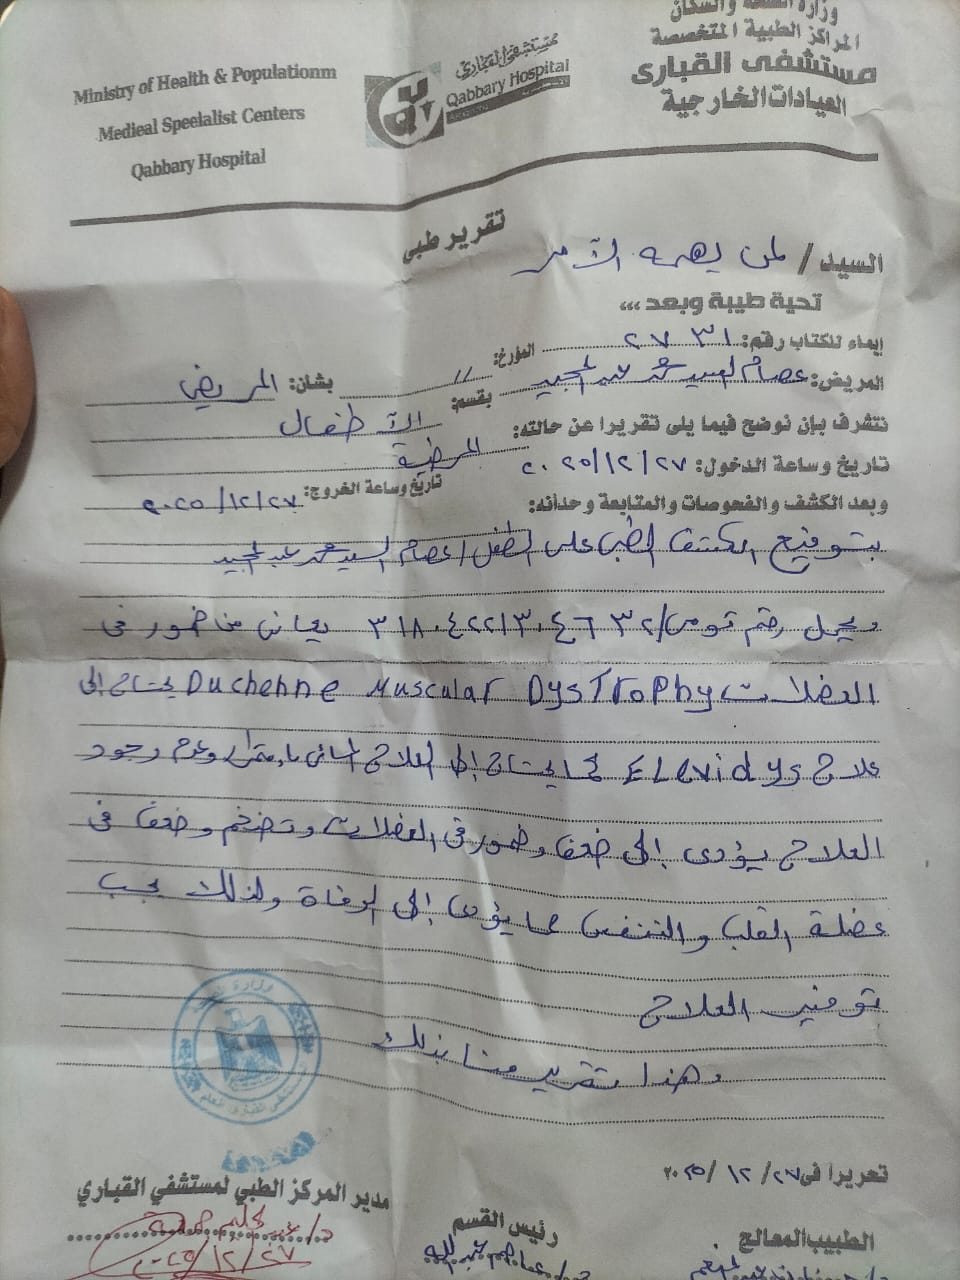 وزارة الصحة والسكان
المراكز الطبية المتخصصة
مستشفى القبارى
العيادات الخارجية
مستشفى القبارى
Qabbary Hospital
Ministry of Health & Populationm
Medieal Speelalist Centers
Qabbary Hospital
تقرير طبي
السيد / لمن يهمه الأمر
تحية طيبة وبعد ،،،
إيماء للكتاب رقم: ٢٧٣١ المؤرخ: // بشان: المريض
المريض: عصام السيد محمد عبد المجيد بقسم: الأطفال
نتشرف بإن نوضح فيما يلى تقريرا عن حالته: المرضية
تاريخ وساعة الدخول: ٢٠٢٥/١٢/٢٧ تاريخ وساعة الخروج: ٢٠٢٥/١٢/٢٧
وبعد الكشف والفحوصات والمتابعة وجدأنه:
بتوقيع الكشف الطبى على الطفل / عصام السيد محمد عبد المجيد
ويحمل رقم قومى / ٣١٨٠٤٢٢١٣٠٤٦٣٢ يعانى من ضمور فى
العضلات Duchenne Muscular DysTroPhy يحتاج إلى
علاج ELevidys كما يحتاج إلى العلاج المائى باستمرار وعدم وجود
العلاج يؤدى إلى ضعف وضمور فى العضلات وتضخم وضعف فى
عضلة القلب والتنفس مما يؤدى إلى الوفاة ولذلك يجب
توفير العلاج
وهذا تقرير منا بذلك
تحريرا فى ٢٧/ ١٢ / ٢٠٢٥
الطبيب المعالج
رئيس القسم
مدير المركز الطبي لمستشفي القباري
٢٠٢٥/١٢/٢٧